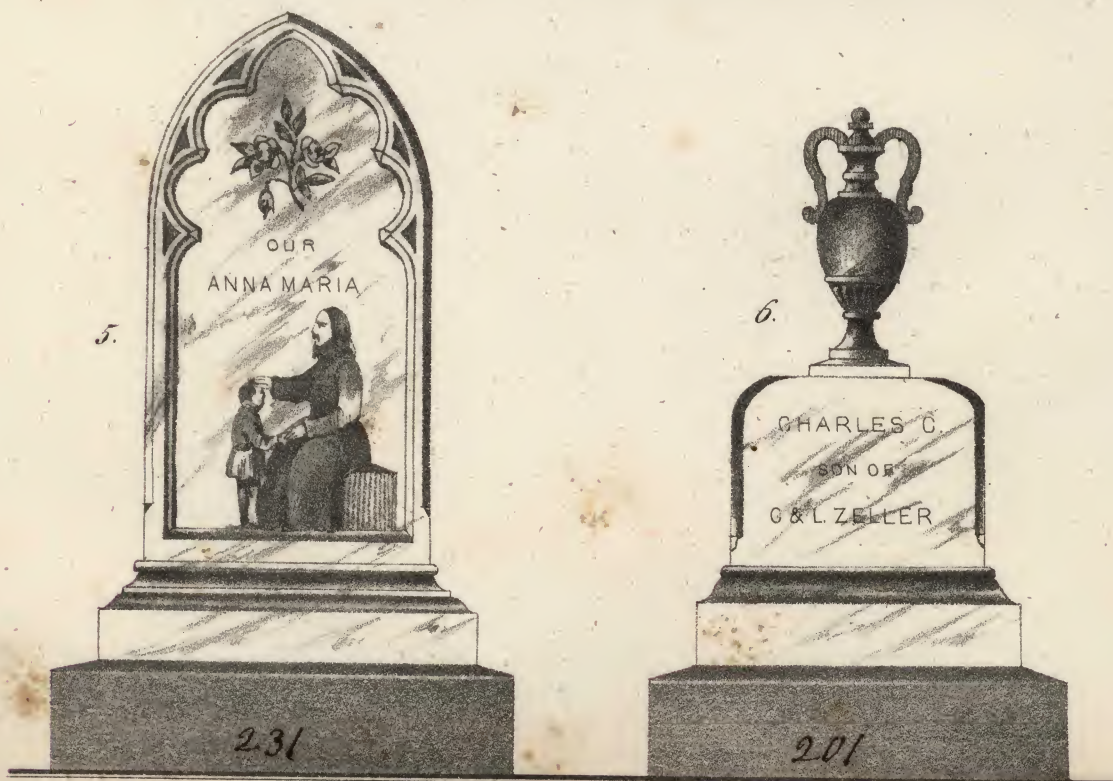 5.
OUR
ANNA MARIA
231
6.
CHARLES C.
SON OF
C & L. ZELLER
201